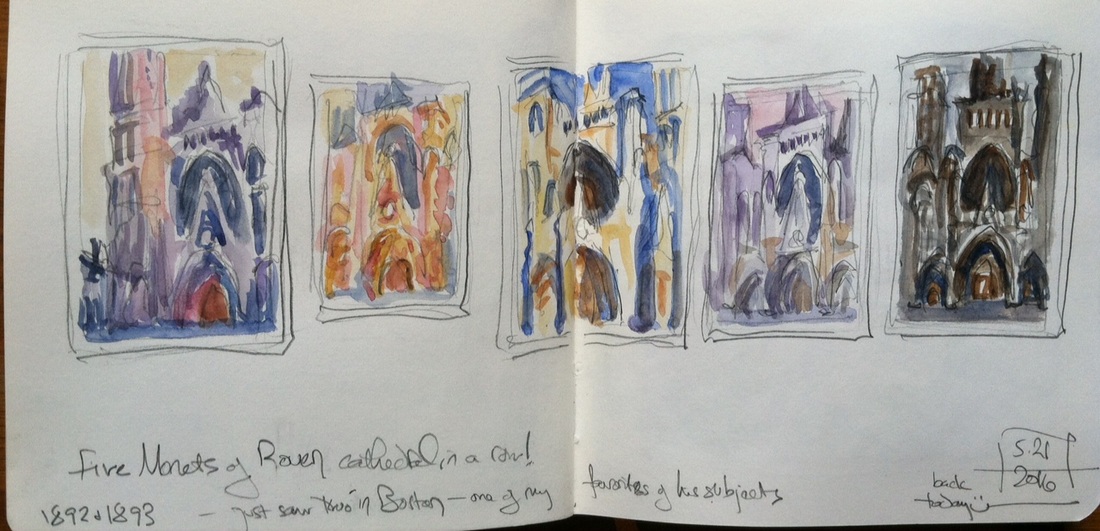 Five Monets of Rouen cathedral, in a row!
1892 & 1893 – just saw two in Boston – one of my favorites of his subjects
back today
5.21
2016